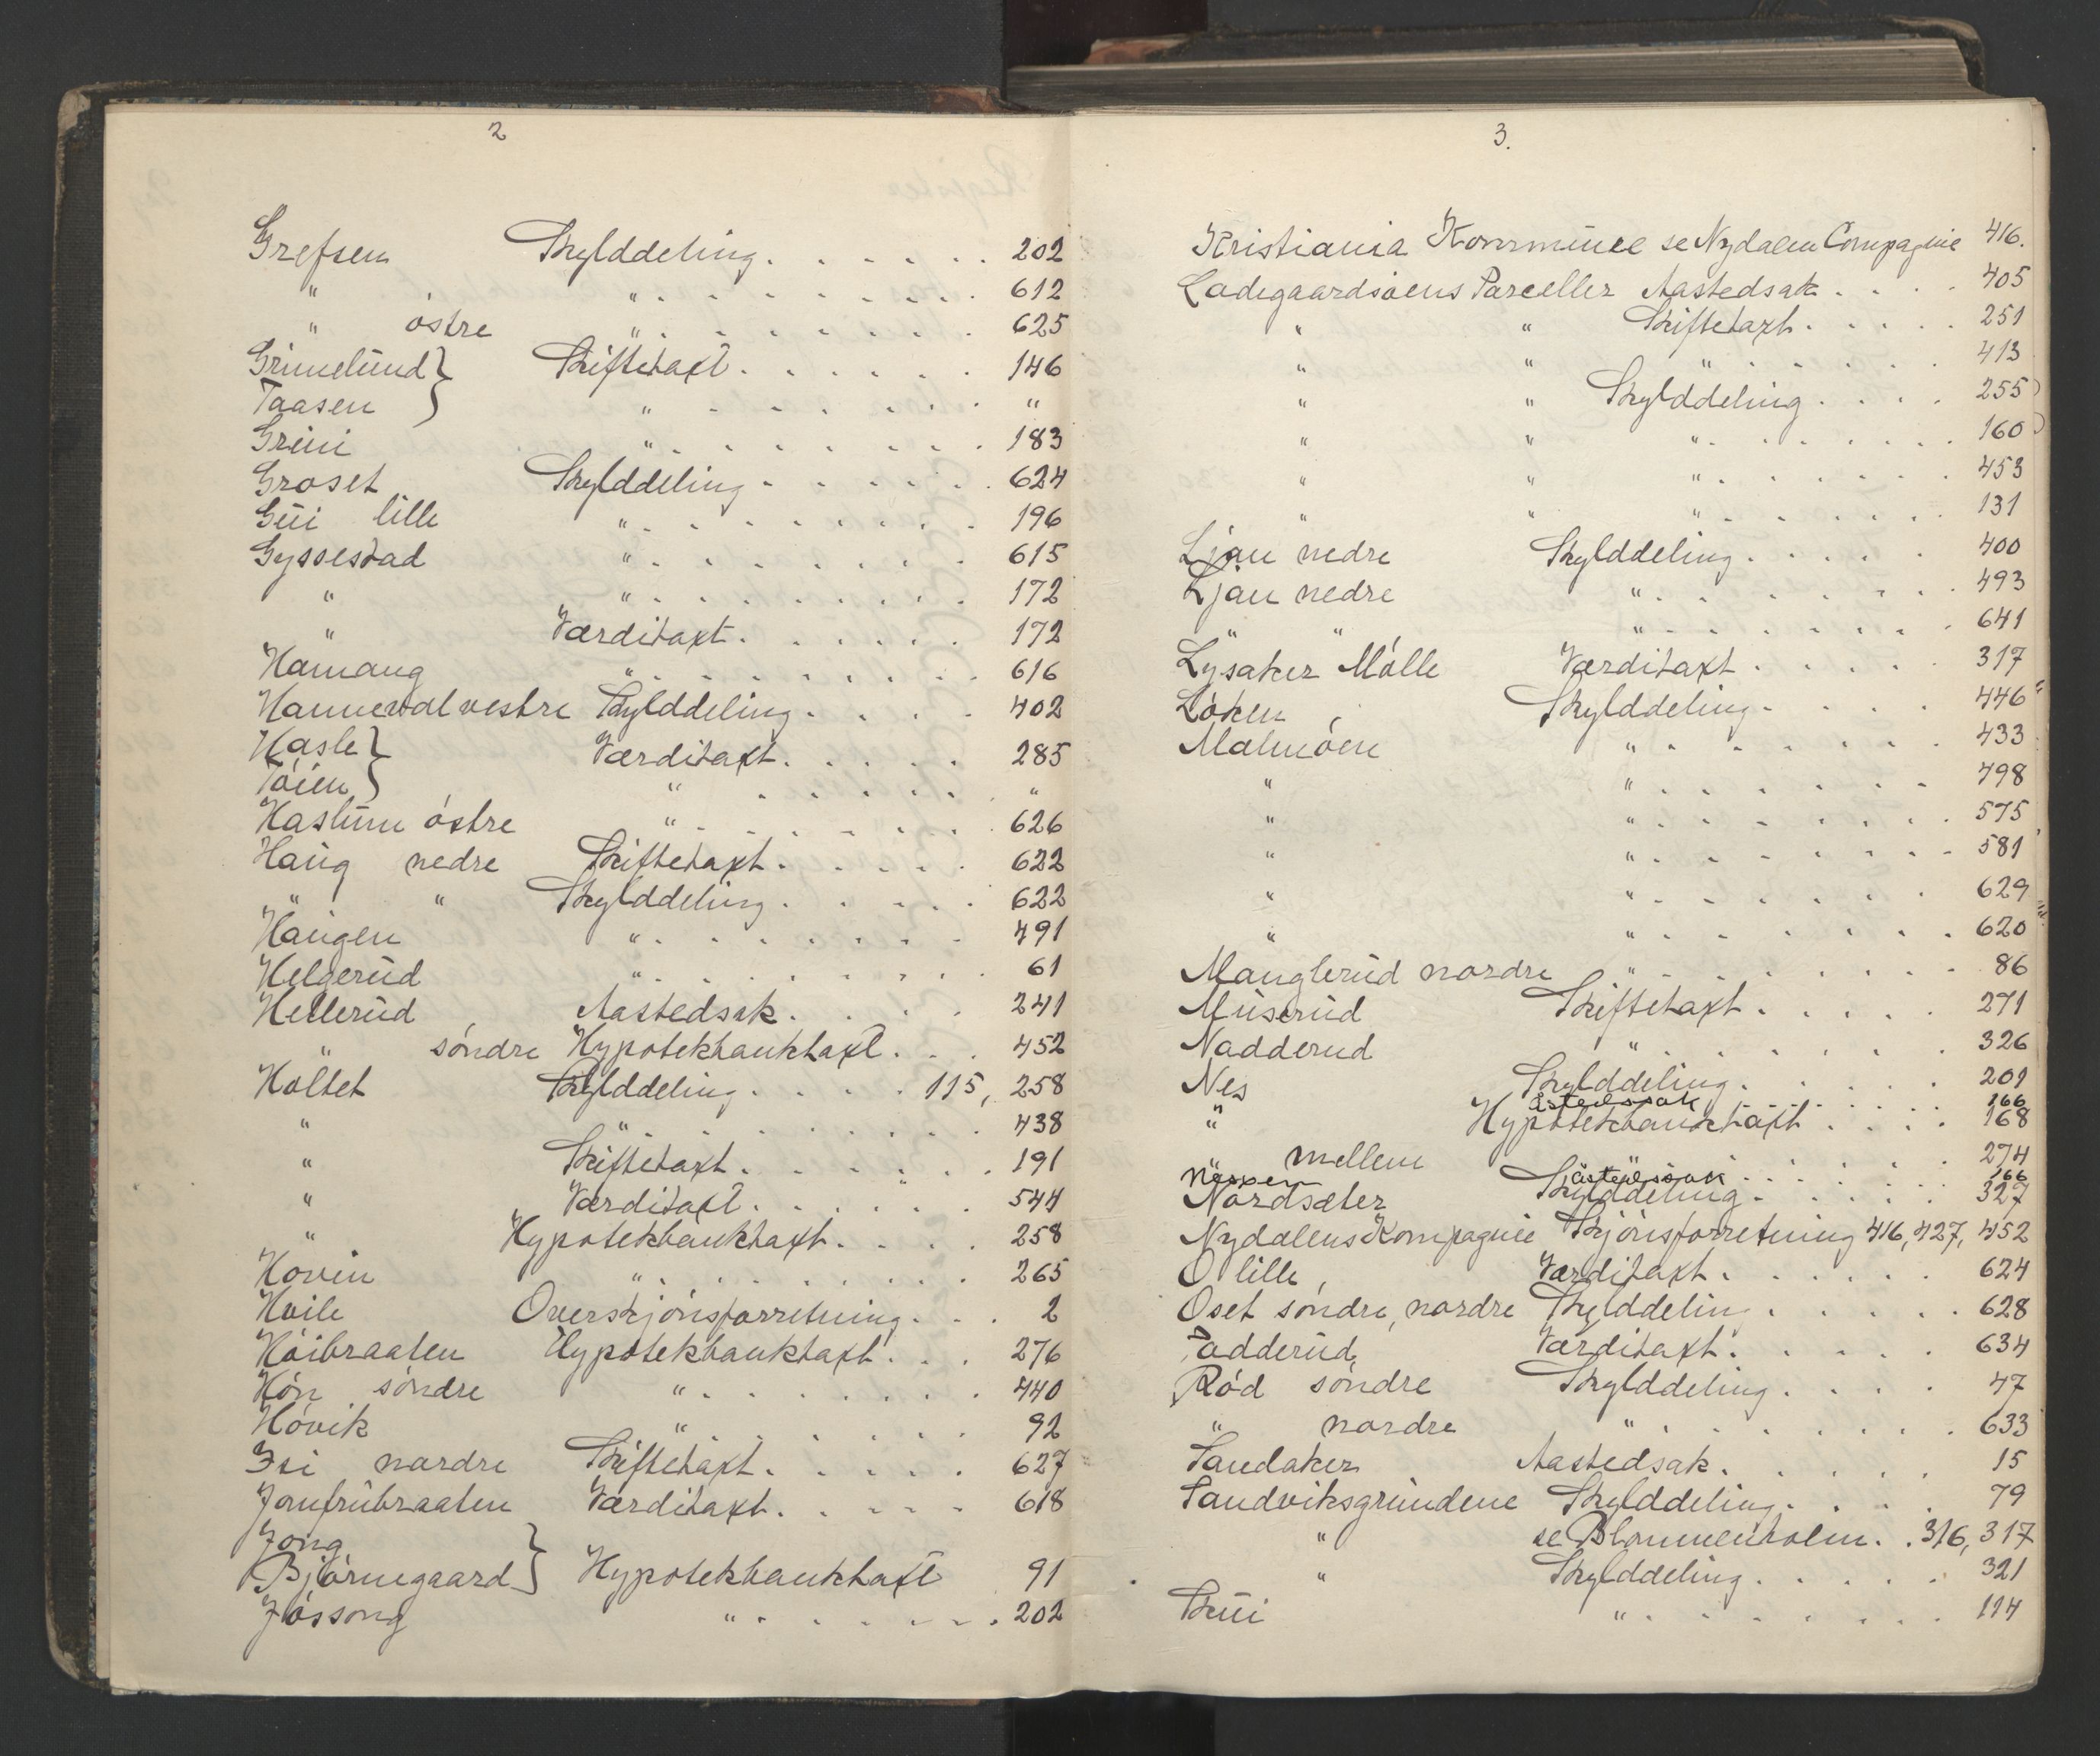 2
Grefsen Skylddeling . . . . . . 202
" " . . . . . . . . . 612
" östre " . . . . . . . . 625
Grimelund } Skiftetaxt . . . . . . 146
Taasen } " . . . . . . . "
Grini " . . . . . . . . 183
Groset Skylddeling . . . . . . 624
Gui lille " . . . . . . . . . 196
Gyssestad " . . . . . . . . 615
" " . . . . . . . . 172
" Værditaxt . . . . . . 172
Hamang " . . . . . . . . . 616
Hanneval vestre Skylddeling . . . . 402
Hasle } Værditaxt . . . . . 285
Töien } " . . . . . . "
Haslum östre " . . . . . . . . 626
Haug nedre Skiftetaxt . . . . . 622
" " Skylddeling . . . . . 622
Haugen " . . . . . . . 491
Helgerud " . . . . . . . . 61
Hellerud Aastedsak . . . . 241
" söndre Hypotekbanktaxt . . . 452
Holtet Skylddeling . . . . 115, 258
" " . . . . . . . . 438
" Skiftetaxt . . . . . . 191
" Værditaxt . . . . . . 544
" Hypotekbanktaxt . . . . 258
Hovin " . . . . . . . . 265
Hvile Overskjönsforretning . . . 2
Höibraaten Hypotekbanktaxt . . . 276
Hön söndre " . . . . . . . 440
Hövik " . . . . . . . 92
Isi nordre Skiftetaxt . . . . . 627
Jomfrubraaten Værditaxt . . . . . 618
Jong }
Björnegaard } Hypotekbanktaxt 91
Jössong " . . . . . . . 202
3.
Kristiania Kommune se Nydalen Compagnie 416.
Ladegaardsöens Parceller Aastedsak . . . . 405
" " Skiftetaxt . . . . . 251
" " " . . . . . . 413
" " Skylddeling . . . . 255
" " " . . . . . . . 160
" " " . . . . . . . 453
" " " . . . . . . . 131
Ljan nedre Skylddeling . . . . . 400
Ljan nedre " . . . . . . . . 493
" " " . . . . . . . . 641
Lysaker Mölle Værditaxt . . . . . 317
Löken Skylddeling . . . . 446
Malmöen " . . . . . . . 433
" " . . . . . . . 498
" " . . . . . . . . 575
" " . . . . . . . . 581
" " . . . . . . . 629
" " . . . . . . . 620
Manglerud nordre " . . . . . . . . 86
Muserud Skiftetaxt . . . . . 271
Nadderud " . . . . . . . 326
Nes Skylddeling . . . . . 201
åstedssak 166
" Hypotekbanktaxt . . . . 168
" mellem " . . . . . . . 274
Nesset åstedssak 166
Nordsæter Skylddeling . . . . . 327
Nydalens Kompagnie Skjönsforretning 416, 427, 452
O lille, Værditaxt . . . . . . 624
Oset söndre, nordre Skylddeling . . . . . 628
Padderud Værditaxt . . . . . 634
Röd söndre Skylddeling . . . . 47
" nordre " . . . . . . . . 633
Sandaker Aastedsak . . . . . 15
Sandviksgrundene Skylddeling . . . . 79
" se Blommenholm . . 316, 317
" Skylddeling . . . . . 321
Skui " . . . . . . . . 114